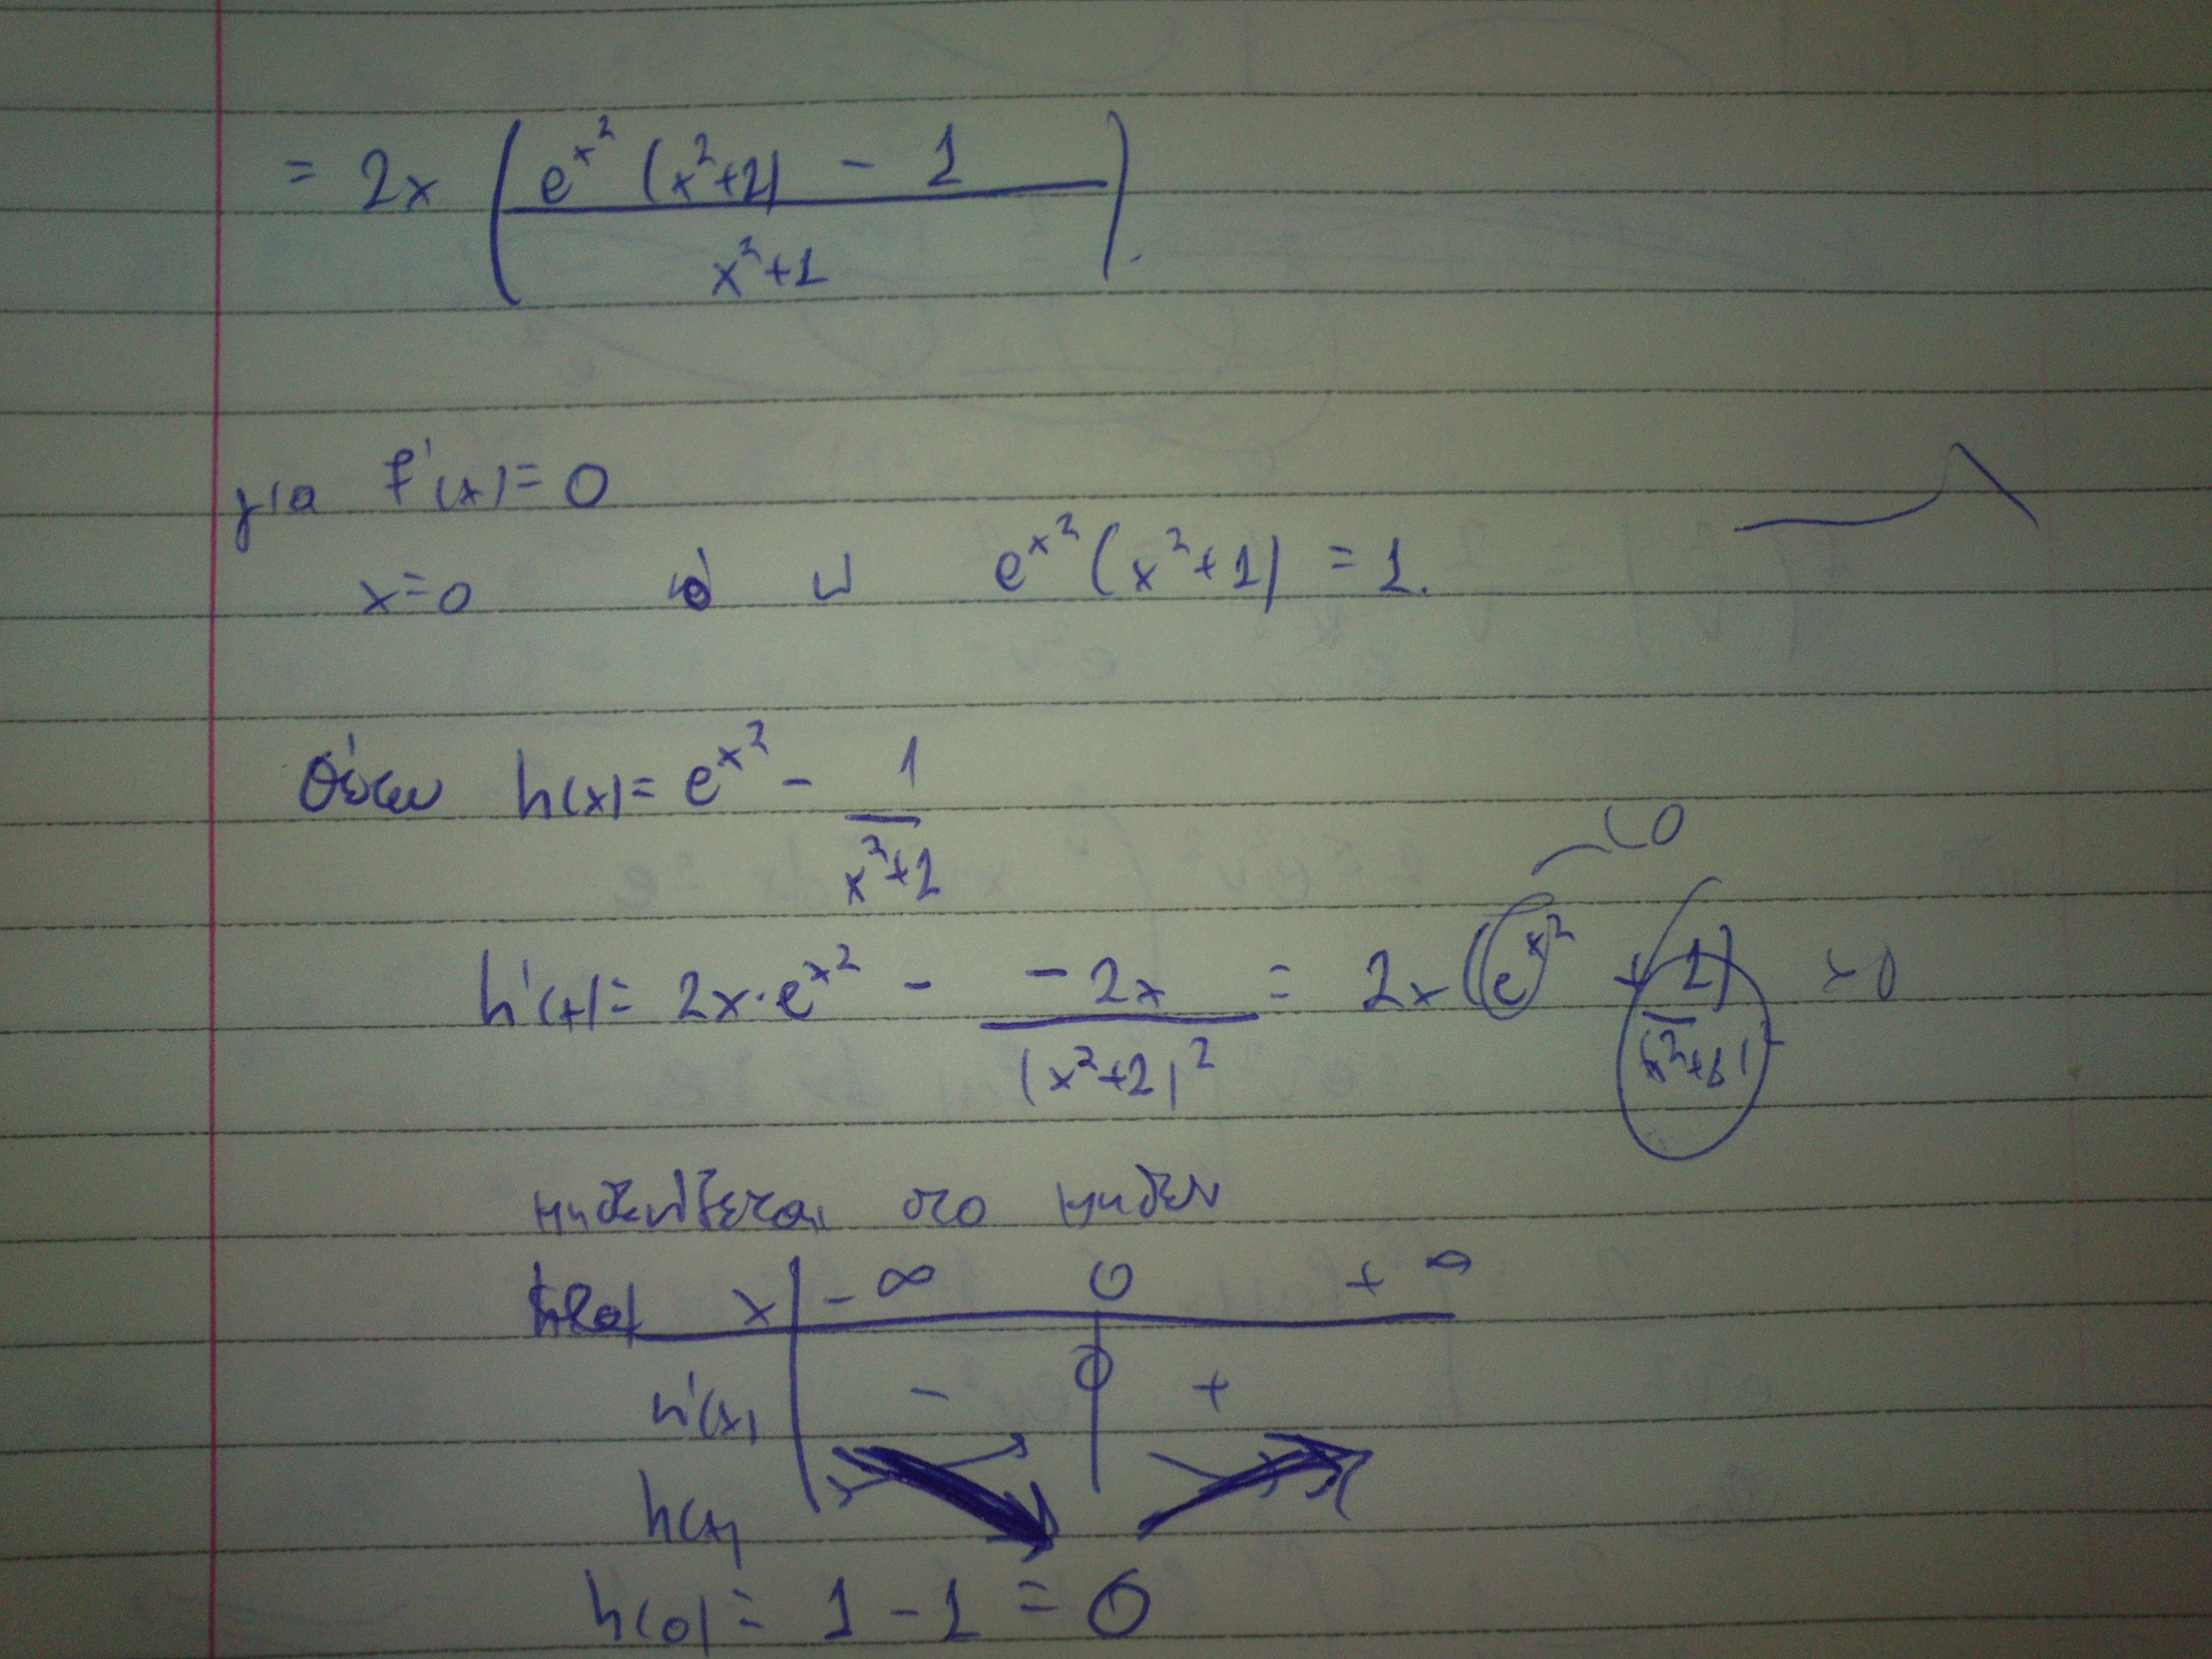 = 2x ( e^{x^2} (x^2+1) - 1 / x^2+1 ).
για f'(x) = 0
x=0 ή e^{x^2} (x^2+1) = 1.
Θέτω h(x) = e^{x^2} - 1 / x^2+1
h'(x) = 2x·e^{x^2} - -2x / (x^2+1)^2 = 2x (e^{x^2} + 1 / (x^2+1)^2) >0
μηδενίζεται στο μηδεν
x | -∞ 0 +∞
h'(x) - 0 +
h(x)
h(0) = 1 - 1 = 0